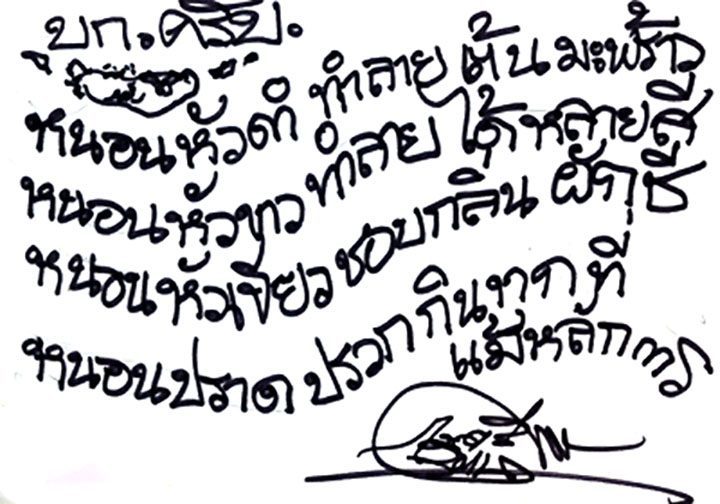 บก. ศรีบ.
หนอนหัวดำ ทำลาย ต้นมะพร้าว
หนอนหัวขาว ทำลาย ได้หลายสี
หนอนหัวเขียว ชอบกลิน ผักชี
หนอนปราด ปรวก กินทุกที่
แม้หลักการ